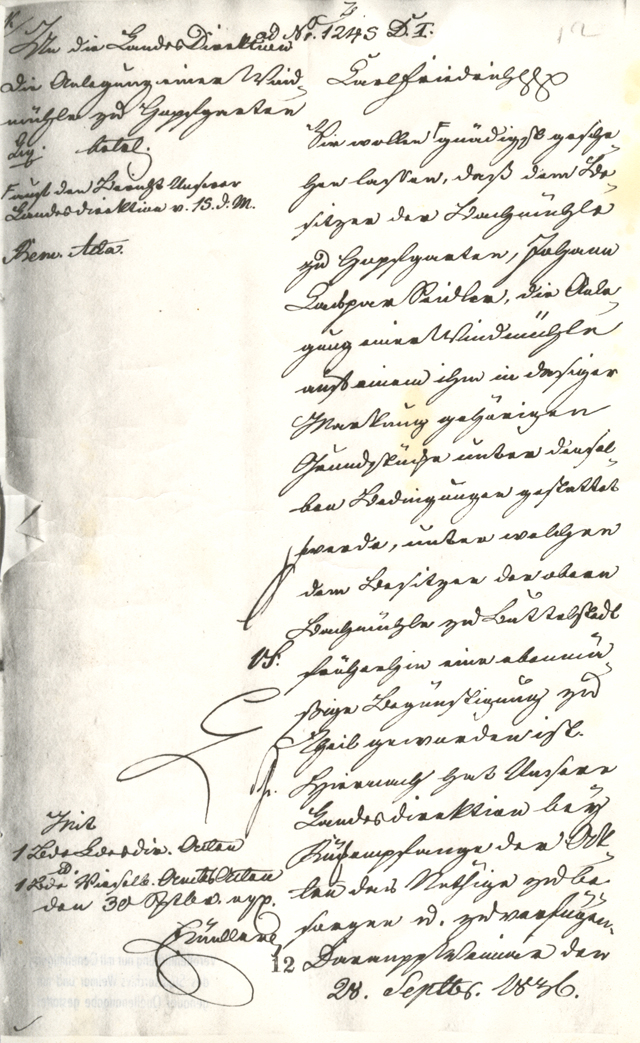 ad No. 1245 D. T.
An die Landes Direktion
die Anlegung einer Wind-
mühle zu Hopfgarten
betrl.
auf den Bericht Unserer
Landesdirektion v. 15. d. M.
Rem. Acta.
Carl Friedrich
Wir wollen gnädigst gesche-
hen lassen, daß dem Be-
sitzer der Bachmühle
zu Hopfgarten, Johann
Caspar Seidler, die Anle-
gung einer Windmühle
auf einem ihm in dasiger
Markung gehörigen
Grundstücke unter densel-
ben Bedingungen gestattet
werde, unter welchen
dem Besitzer der obern
Bachmühle zu Buttelstedt
früherhin eine ebenmä-
ßige Begünstigung zu
Theil geworden ist.
Hiernach hat Unsere
Landesdirektion bey
Rückempfange der Ak-
ten das Nöthige zu be-
sorgen u. zu verfügen.
Weimar den
28. Septbr. 1836.
Mit
1 Bde Ldesdir. Acten
1 Bde Vieselb. Amts Acten
den 30 Septbr. exp.
Müller
12